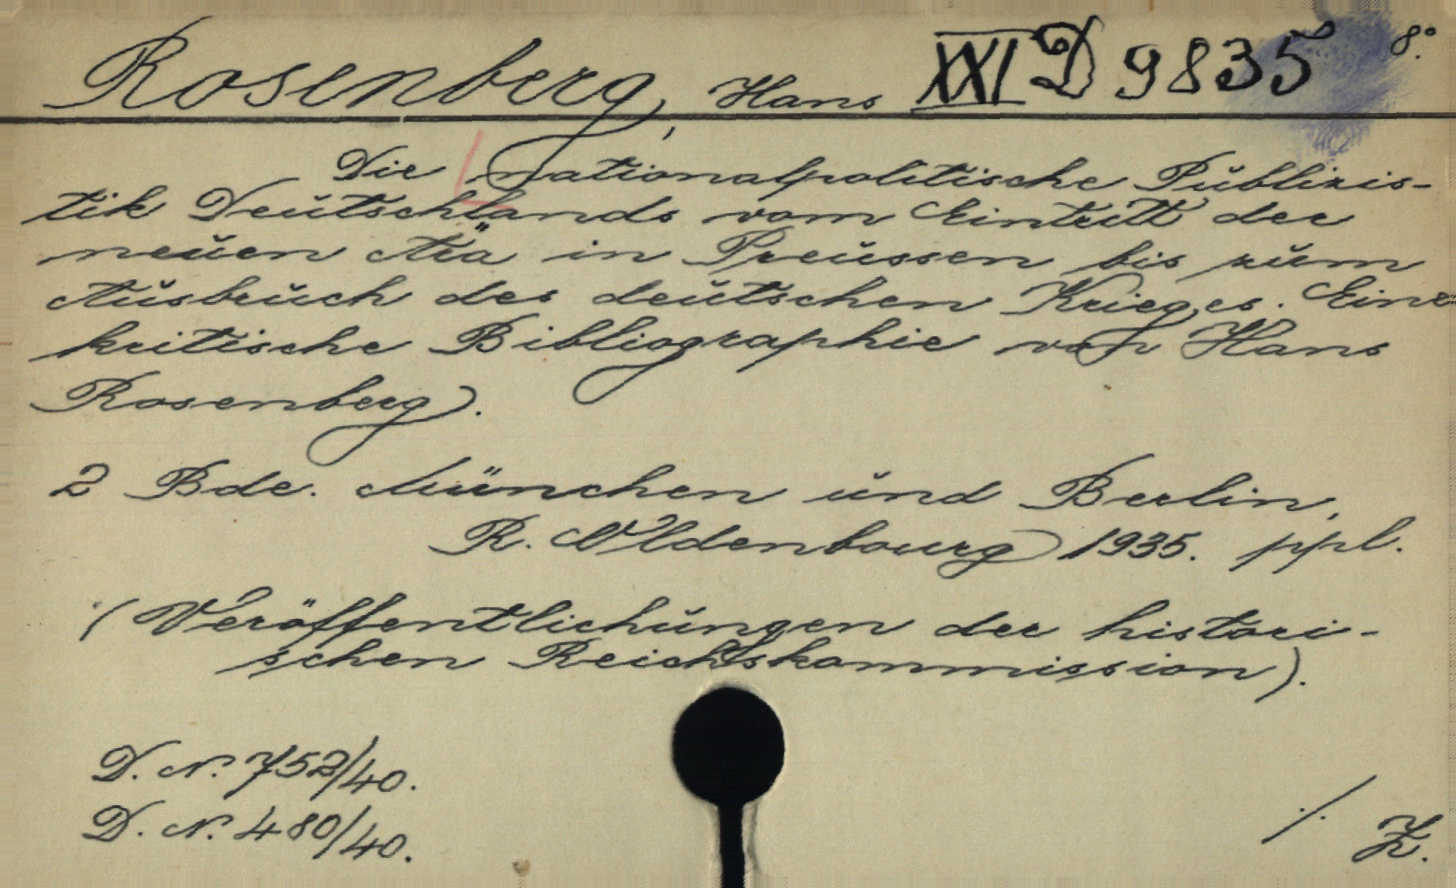 Rosenberg, Hans XXI D 9835 8°.
Die nationalpolitische Publizis-
tik Deutschlands vom Eintritt der
neuen Ära in Preussen bis zum
Ausbruch des deutschen Krieges. Eine
kritische Bibliographie von Hans
Rosenberg.
2 Bde. München und Berlin,
R. Oldenbourg 1935. ppl.
(Veröffentlichungen der histori-
schen Reichskommission).
D. N. 752/40.
D. N. 480/40.